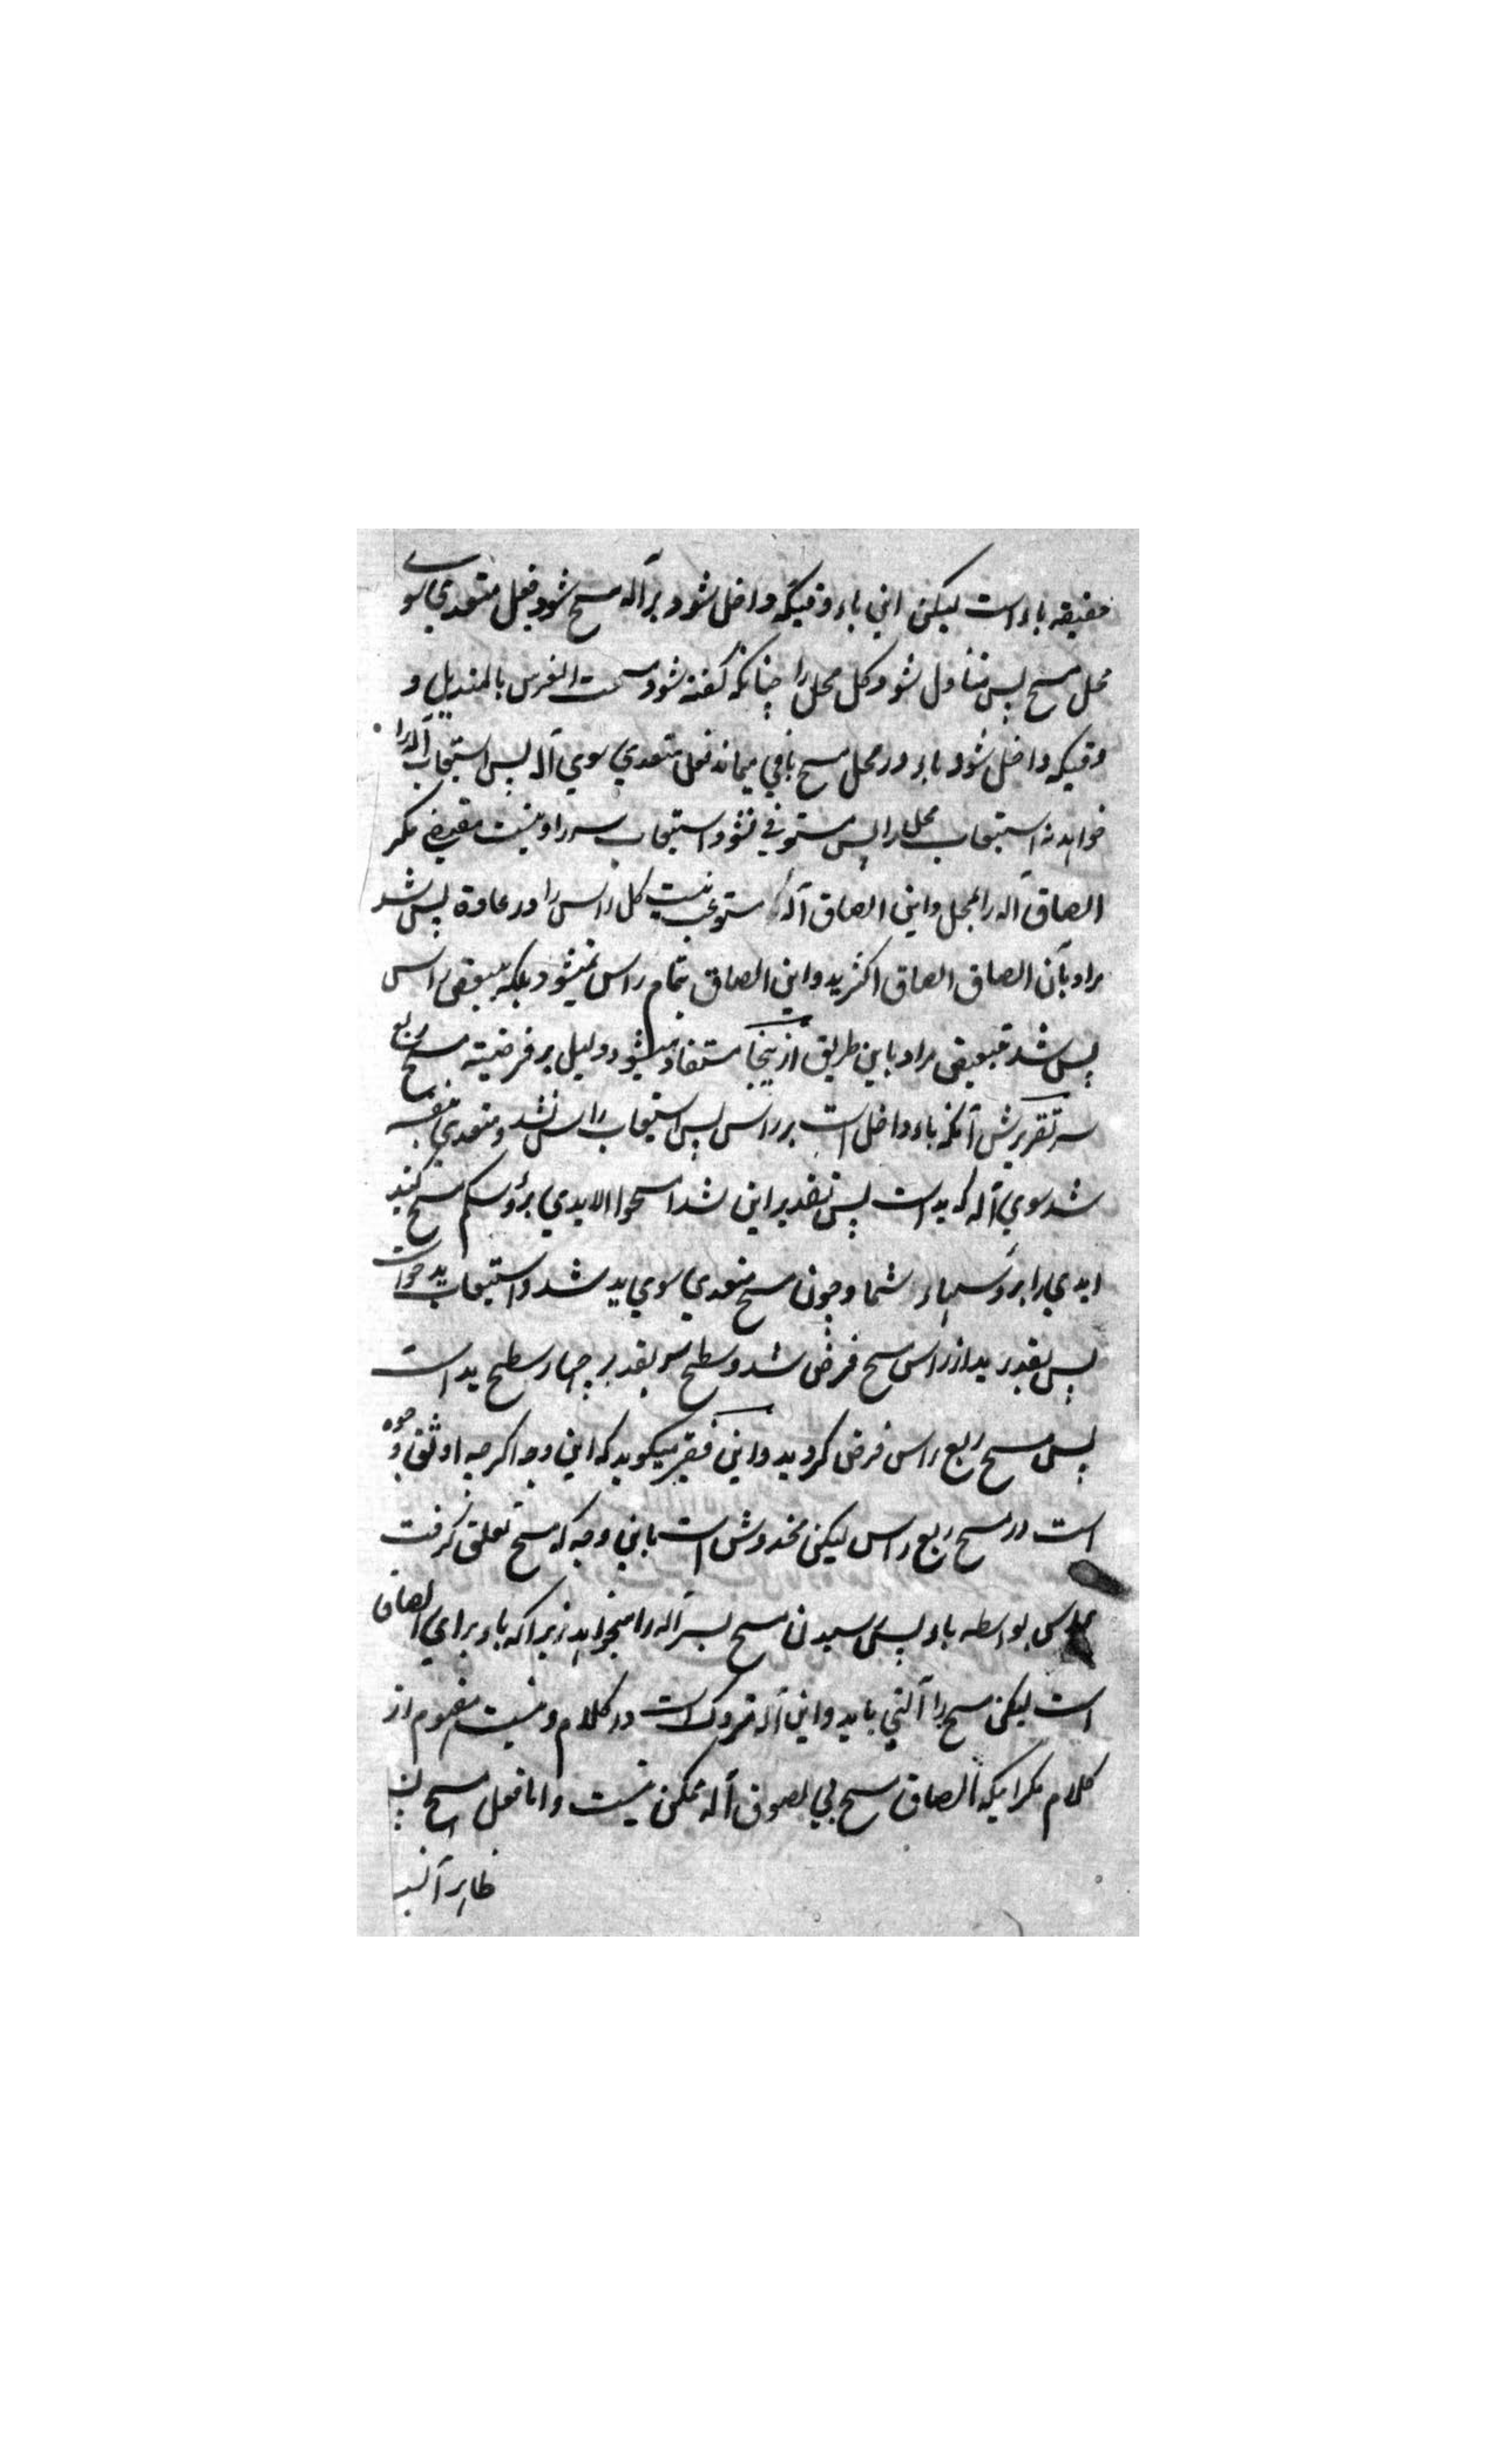 حقیقه باء است لیکن این باء وقتیکه داخل شود بر آله مسح شود فعل متعدی سوی
محل مسح پس متناول شود کل محل را چنانکه گفته شود مسحت الفرس بالمندیل و
وقتیکه داخل شود باء در محل مسح باقی میماند فعل متعدی سوی آله پس استیعاب آله را
خواهد نه استیعاب محل را پس مستوفی نشود استیعاب سر را و نیست مقتضی مکر
الصاق آله را بمحل و این الصاق آله مستوعب نیست کل راس را در عادة پس شد
مراد بآن الصاق الصاق اکثر ید و این الصاق بتمام راس نمیشود بلکه ببعض راس
پس شد تبعیض مراد باین طریق از ینجا مستفاد میشود دلیل بر فرضیته مسح ربع
سر تقریرش آنکه باء داخل است بر راس پس استیعاب راس نشد و متعدی بنفسه
شد سوی آله که ید است پس تقدیر این شد امسحوا الایدی برؤسکم مسح کنید
ایدی را برؤسهاء شما و چون مسح متعدی سوی ید شد و استیعاب ید خواست
پس بقدر ید از راس مسح فرض شد و سطح سر بقدر چهار سطح ید است
پس مسح ربع راس فرض کردید و این فقیر میکوید که این وجه اکرچه اوثق وجوه
است در مسح ربع راس لیکن مخدوش است باین وجه که مسح تعلق کرفت
براس بواسطه باء پس رسیدن مسح بسر آله را میخواهد زیرا که باء برای الصاق
است لیکن مسح را آلتی باید و این آله متروک است در کلام و نیست مفهوم از
کلام مکر اینکه الصاق مسح بی لصوق آله ممکن نیست و اما فعل مسح پس
ظاهر آنست